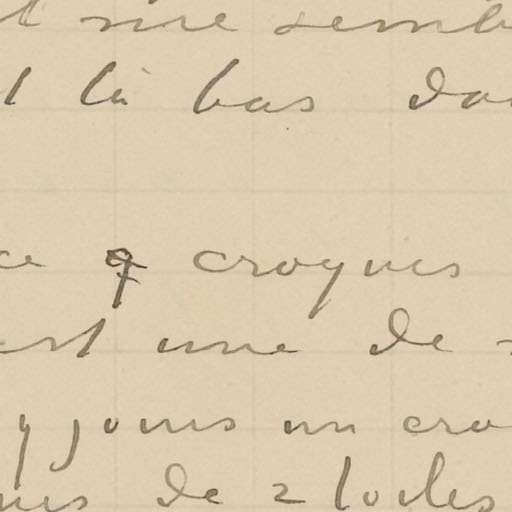 me semb
t là bas da
ce q croquis
est une de
y joins un cro
de 2 toiles